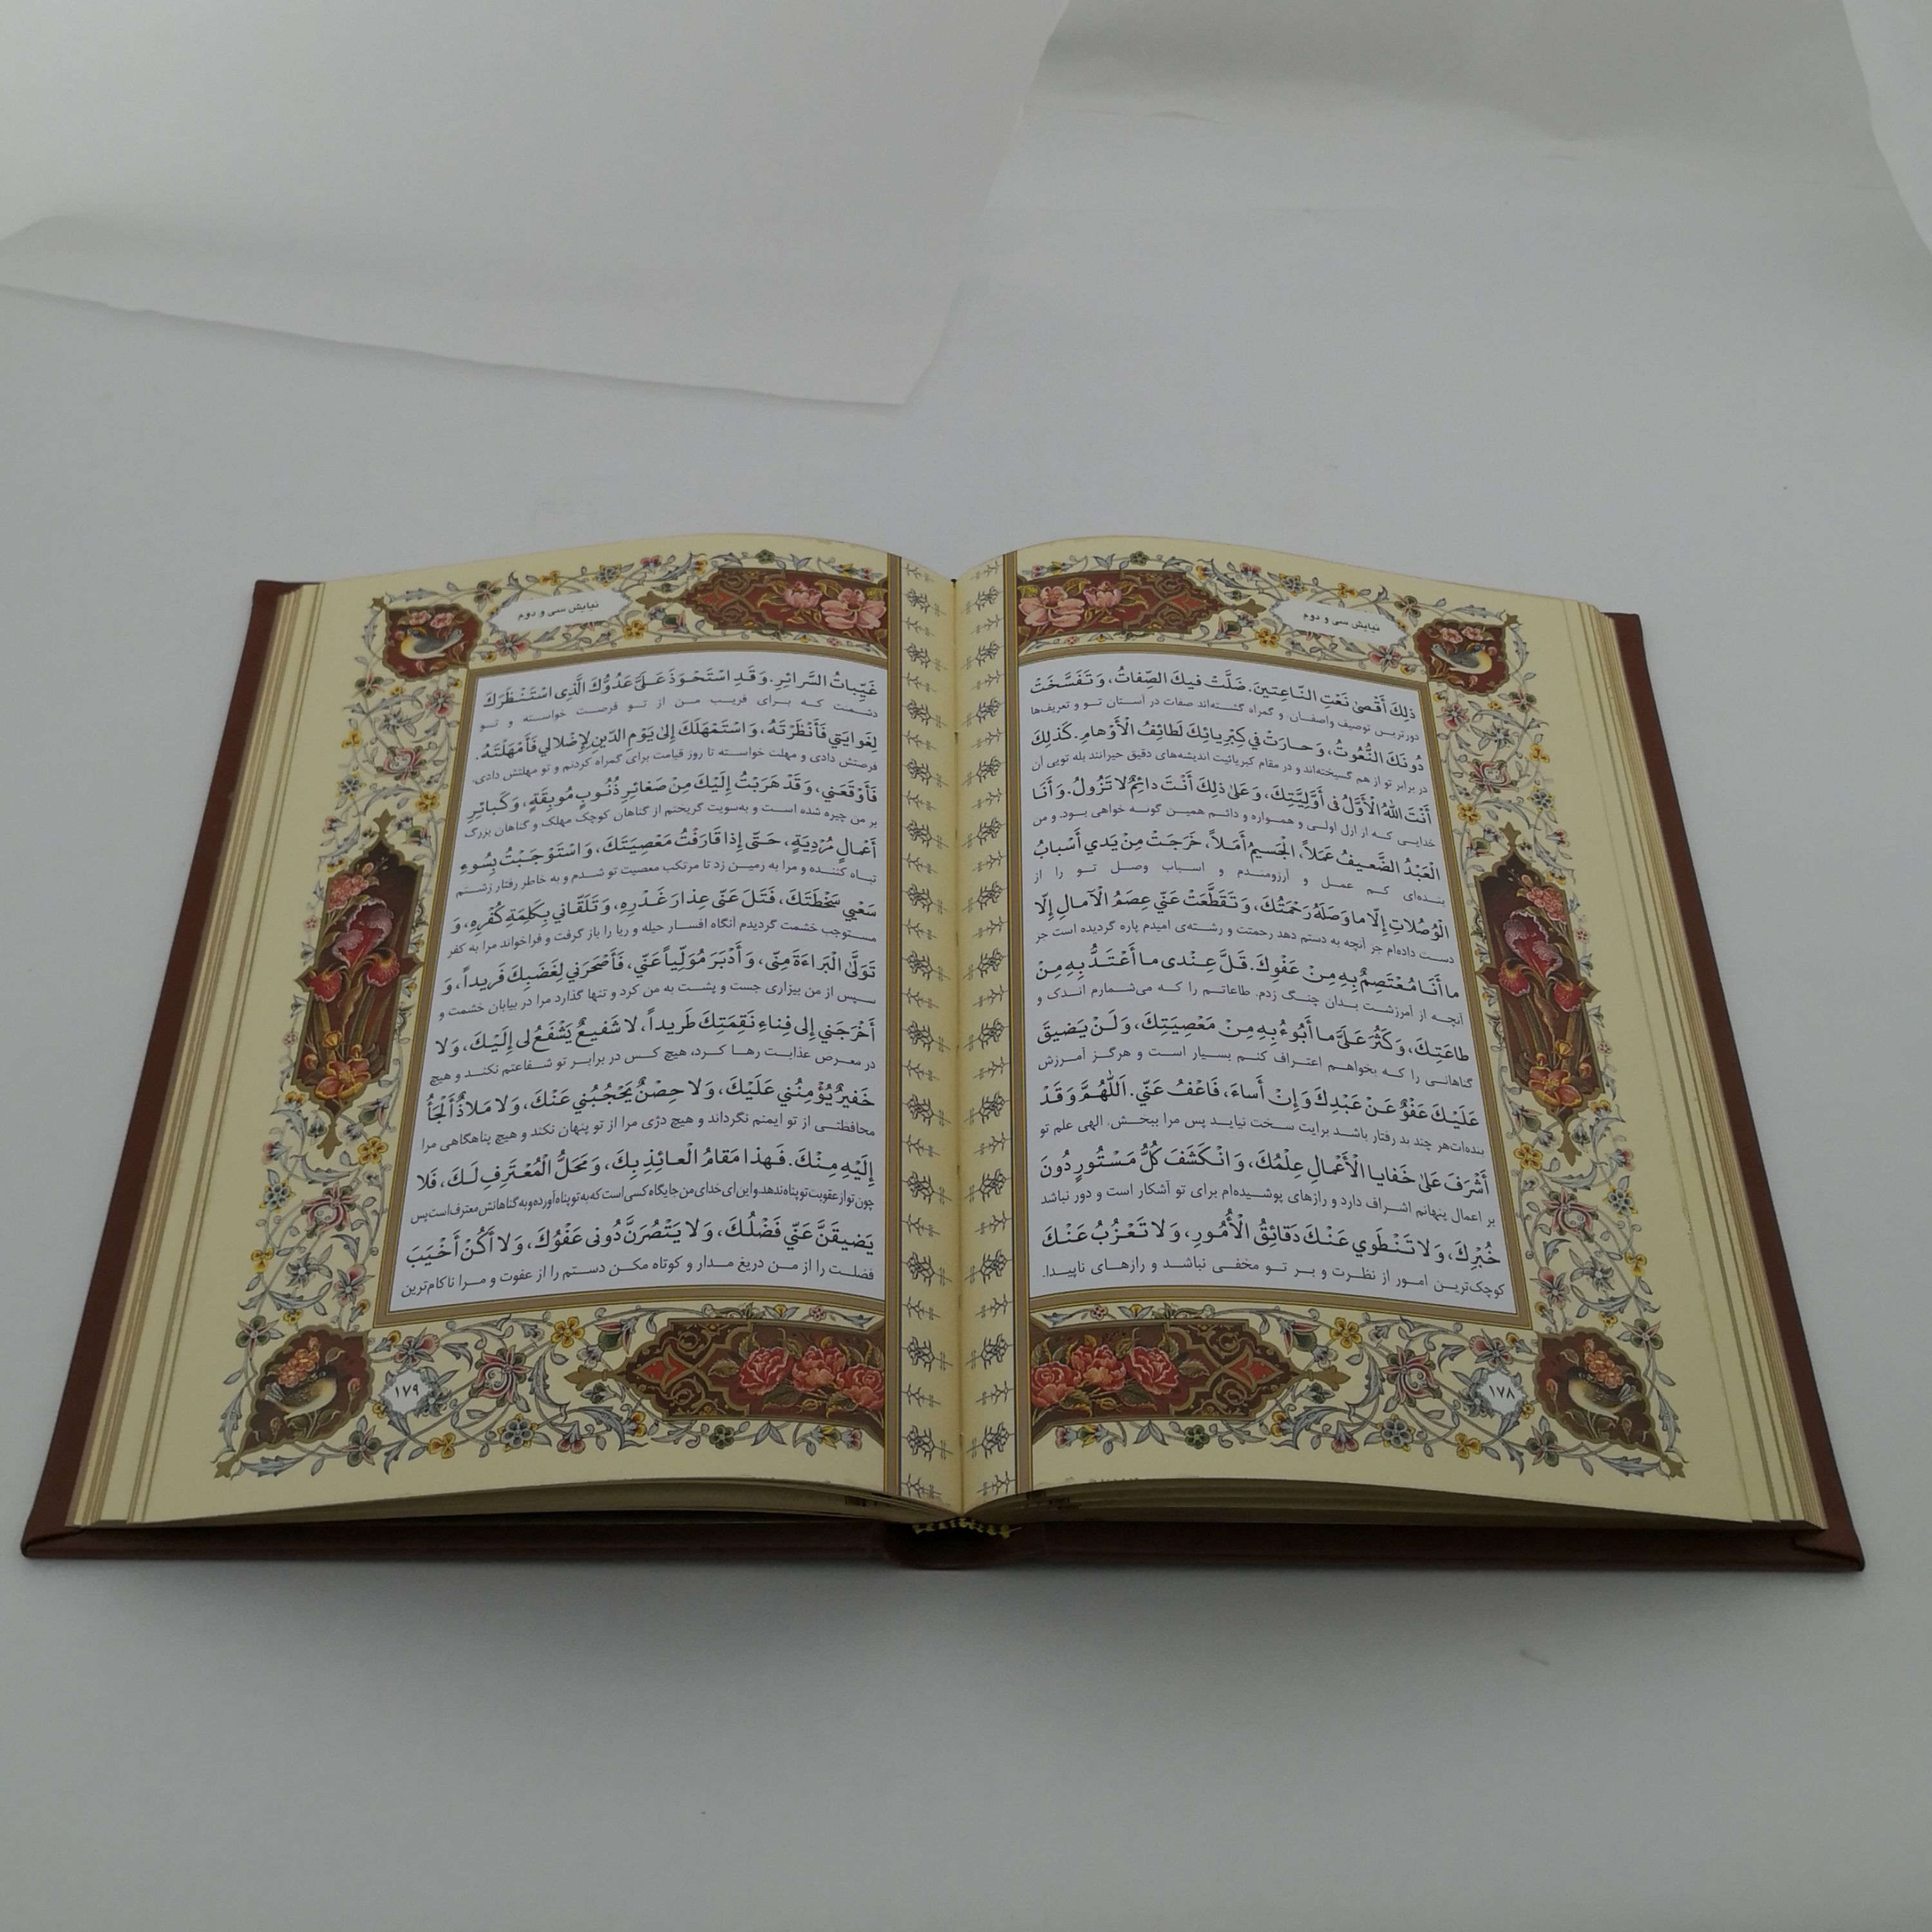 نیایش سی و دوم
ذٰلِكَ أَقْصىٰ نَعْتِ النّاعِتينَ. ضَلَّتْ فيكَ الصِّفاتُ، وَ تَفَسَّخَتْ
دورترین توصیف واصفان. و گمراه گشته‌اند صفات در آستان تو و تعریف‌ها
دُونَكَ النُّعُوتُ، وَ حارَتْ في كِبْرِيائِكَ لَطائِفُ الْأَوْهامِ. كَذٰلِكَ
در برابر تو از هم گسیخته‌اند و در مقام کبریائیت اندیشه‌های دقیق حیرانند بله تویی آن
أَنْتَ اللّٰهُ الْأَوَّلُ فى أَوَّلِيَّتِكَ، وَ عَلىٰ ذٰلِكَ أَنْتَ دائِمٌ لا تَزُولُ. وَ أَنَا
خدایی که از ازل اولی و همواره و دائم همین گونه خواهی بود. و من
الْعَبْدُ الضَّعيفُ عَمَلاً، الْجَسيمُ أَمَلاً، خَرَجَتْ مِنْ يَدي أَسْبابُ
بنده‌ای کم عمل و آرزومندم و اسباب وصل تو را از
الْوُصُلاتِ إِلّا ما وَصَلَهُ رَحْمَتُكَ، وَ تَقَطَّعَتْ عَنّي عِصَمُ الْآمالِ إِلّا
دست داده‌ام جز آنچه به دستم دهد رحمتت و رشته‌ی امیدم پاره گردیده است جز
ما أَنَا مُعْتَصِمٌ بِهِ مِنْ عَفْوِكَ. قَلَّ عِنْدى ما أَعْتَدُّ بِهِ مِنْ
آنچه از آمرزشت بدان چنگ زدم. طاعاتم را که می‌شمارم اندک و
طاعَتِكَ، وَ كَثُرَ عَلَيَّ ما أَبُوءُ بِهِ مِنْ مَعْصِيَتِكَ، وَ لَنْ يَضيقَ
گناهانی را که بخواهم اعتراف کنم بسیار است و هرگز آمرزش
عَلَيْكَ عَفْوٌ عَنْ عَبْدِكَ وَ إِنْ أَساءَ، فَاعْفُ عَنّي. اَللّٰهُمَّ وَ قَدْ
بنده‌ات هر چند بد رفتار باشد برایت سخت نیاید پس مرا ببخش. الهی علم تو
أَشْرَفَ عَلىٰ خَفايا الْأَعْمالِ عِلْمُكَ، وَ انْكَشَفَ كُلُّ مَسْتُورٍ دُونَ
بر اعمال پنهانم اشراف دارد و رازهای پوشیده‌ام برای تو آشکار است و دور نباشد
خُبْرِكَ، وَ لا تَنْطَوي عَنْكَ دَقائِقُ الْأُمُورِ، وَ لا تَعْزُبُ عَنْكَ
کوچک‌ترین امور از نظرت و بر تو مخفی نباشد و رازهای ناپیدا.
١٧٨
نیایش سی و دوم
غَيِّباتُ السَّرائِرِ. وَ قَدِ اسْتَحْوَذَ عَلَيَّ عَدُوُّكَ الَّذِى اسْتَنْظَرَكَ
دشمنت که برای فریب من از تو فرصت خواسته و تو
لِغَوايَتي فَأَنْظَرْتَهُ، وَ اسْتَمْهَلَكَ إِلىٰ يَوْمِ الدّينِ لِإِضْلالي فَأَمْهَلْتَهُ.
فرصتش دادی و مهلت خواسته تا روز قیامت برای گمراه کردنم و تو مهلتش دادی.
فَأَوْقَعَني، وَ قَدْ هَرَبْتُ إِلَيْكَ مِنْ صَغائِرِ ذُنُوبٍ مُوبِقَةٍ، وَ كَبائِرِ
بر من چیره شده است و به‌سویت گریختم از گناهان کوچک مهلک و گناهان بزرگ
أَعْمالٍ مُرْدِيَةٍ، حَتّى إِذا قارَفْتُ مَعْصِيَتَكَ، وَ اسْتَوْجَبْتُ بِسُوءِ
تباه کننده و مرا به زمین زد تا مرتکب معصیت تو شدم و به خاطر رفتار زشتم
سَعْيي سَخْطَتَكَ، فَتَلَ عَنّي عِذارَ غَدْرِهِ، وَ تَلَقّاني بِكَلِمَةِ كُفْرِهِ، وَ
مستوجب خشمت گردیدم آنگاه افسار حیله و ریا را باز گرفت و فراخواند مرا به کفر
تَوَلَّى الْبَراءَةَ مِنّى، وَ أَدْبَرَ مُوَلِّياً عَنّي، فَأَصْحَرَني لِغَضَبِكَ فَريداً، وَ
سپس از من بیزاری جست و پشت به من کرد و تنها گذارد مرا در بیابان خشمت و
أَخْرَجَني إِلى فِناءِ نَقِمَتِكَ طَريداً، لا شَفيعٌ يَشْفَعُ لى إِلَيْكَ، وَ لا
در معرض عذابت رها کرد، هیچ کس در برابر تو شفاعتم نکند و هیچ
خَفيرٌ يُؤْمِنُني عَلَيْكَ، وَ لا حِصْنٌ يَحْجُبُني عَنْكَ، وَ لا مَلاذٌ أَلْجَأُ
محافظتی از تو ایمنم نگرداند و هیچ دژی مرا از تو پنهان نکند و هیچ پناهگاهی مرا
إِلَيْهِ مِنْكَ. فَهٰذا مَقامُ الْعائِذِ بِكَ، وَ مَحَلُّ الْمُعْتَرِفِ لَكَ، فَلا
چون تو از عقوبت تو پناه ندهد. و این ای خدای من جایگاه کسی است که به تو پناه آورده و به گناهانش معترف است پس
يَضيقَنَّ عَنّي فَضْلُكَ، وَ لا يَقْصُرَنَّ دُونى عَفْوُكَ، وَ لا أَكُنْ أَخْيَبَ
فضلت را از من دریغ مدار و کوتاه مکن دستم را از عفوت و مرا ناکام‌ترین
١٧٩